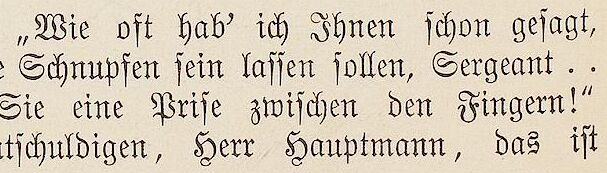 „Wie oft hab’ ich Ihnen schon gesagt,
e Schnupfen sein lassen sollen, Sergeant . .
Sie eine Prise zwischen den Fingern!“
tschuldigen, Herr Hauptmann, das ist